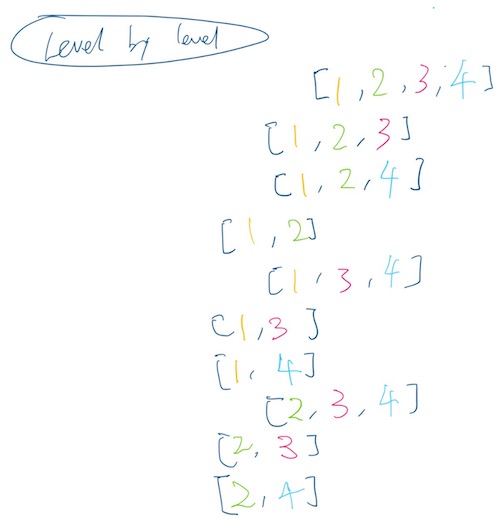 Level by level
[1,2,3,4]
[1,2,3]
[1,2,4]
[1,2]
[1,3,4]
[1,3]
[1,4]
[2,3,4]
[2,3]
[2,4]